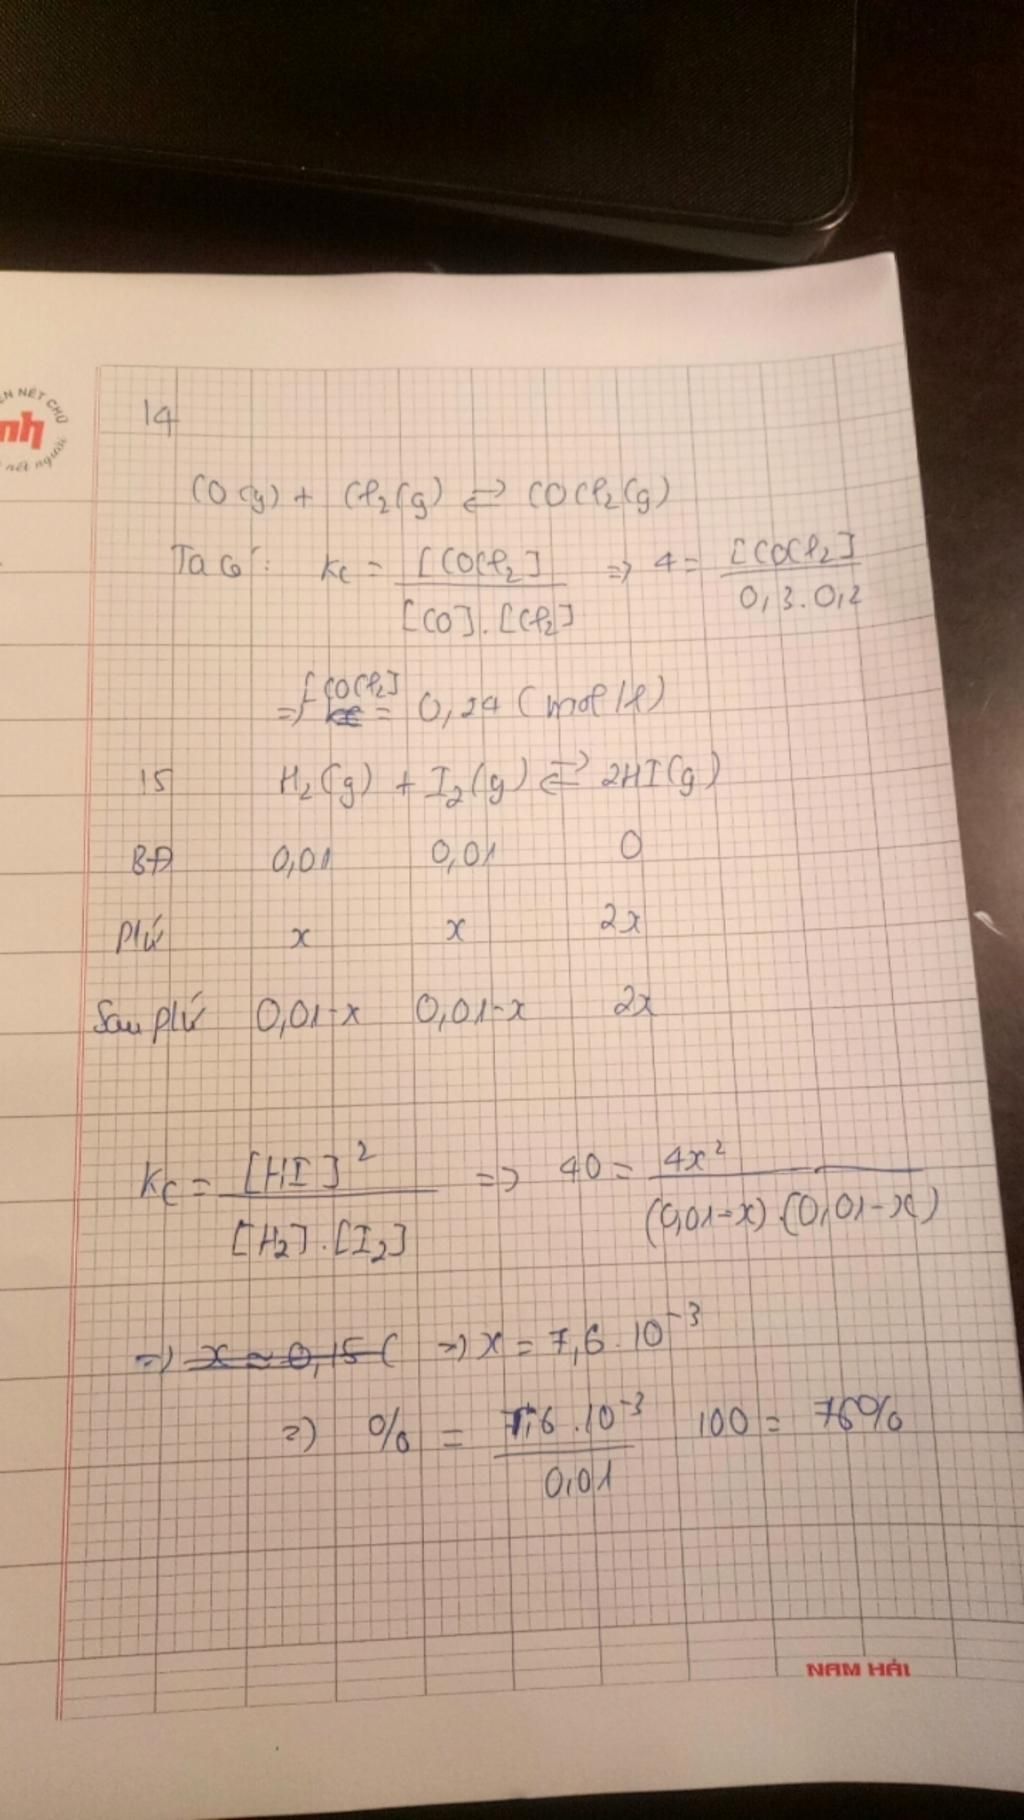 ÈN NÉT CHỮ
nh
nét người
14
CO (g) + Cl₂(g) ⇌ COCl₂(g)
Ta có: Kc = [COCl₂] / [CO].[Cl₂] => 4 = [COCl₂] / 0,3.0,2
=> [COCl₂] = 0,24 (mol/l)
15 H₂(g) + I₂(g) ⇌ 2HI(g)
BĐ 0,01 0,01 0
Pứ x x 2x
Sau pứ 0,01-x 0,01-x 2x
Kc = [HI]² / [H₂].[I₂] => 40 = 4x² / (0,01-x).(0,01-x)
=> x ≈ 0,15 ( => x = 7,6.10⁻³
=> % = 7,6.10⁻³ / 0,01 100 = 76%
NAM HẢI